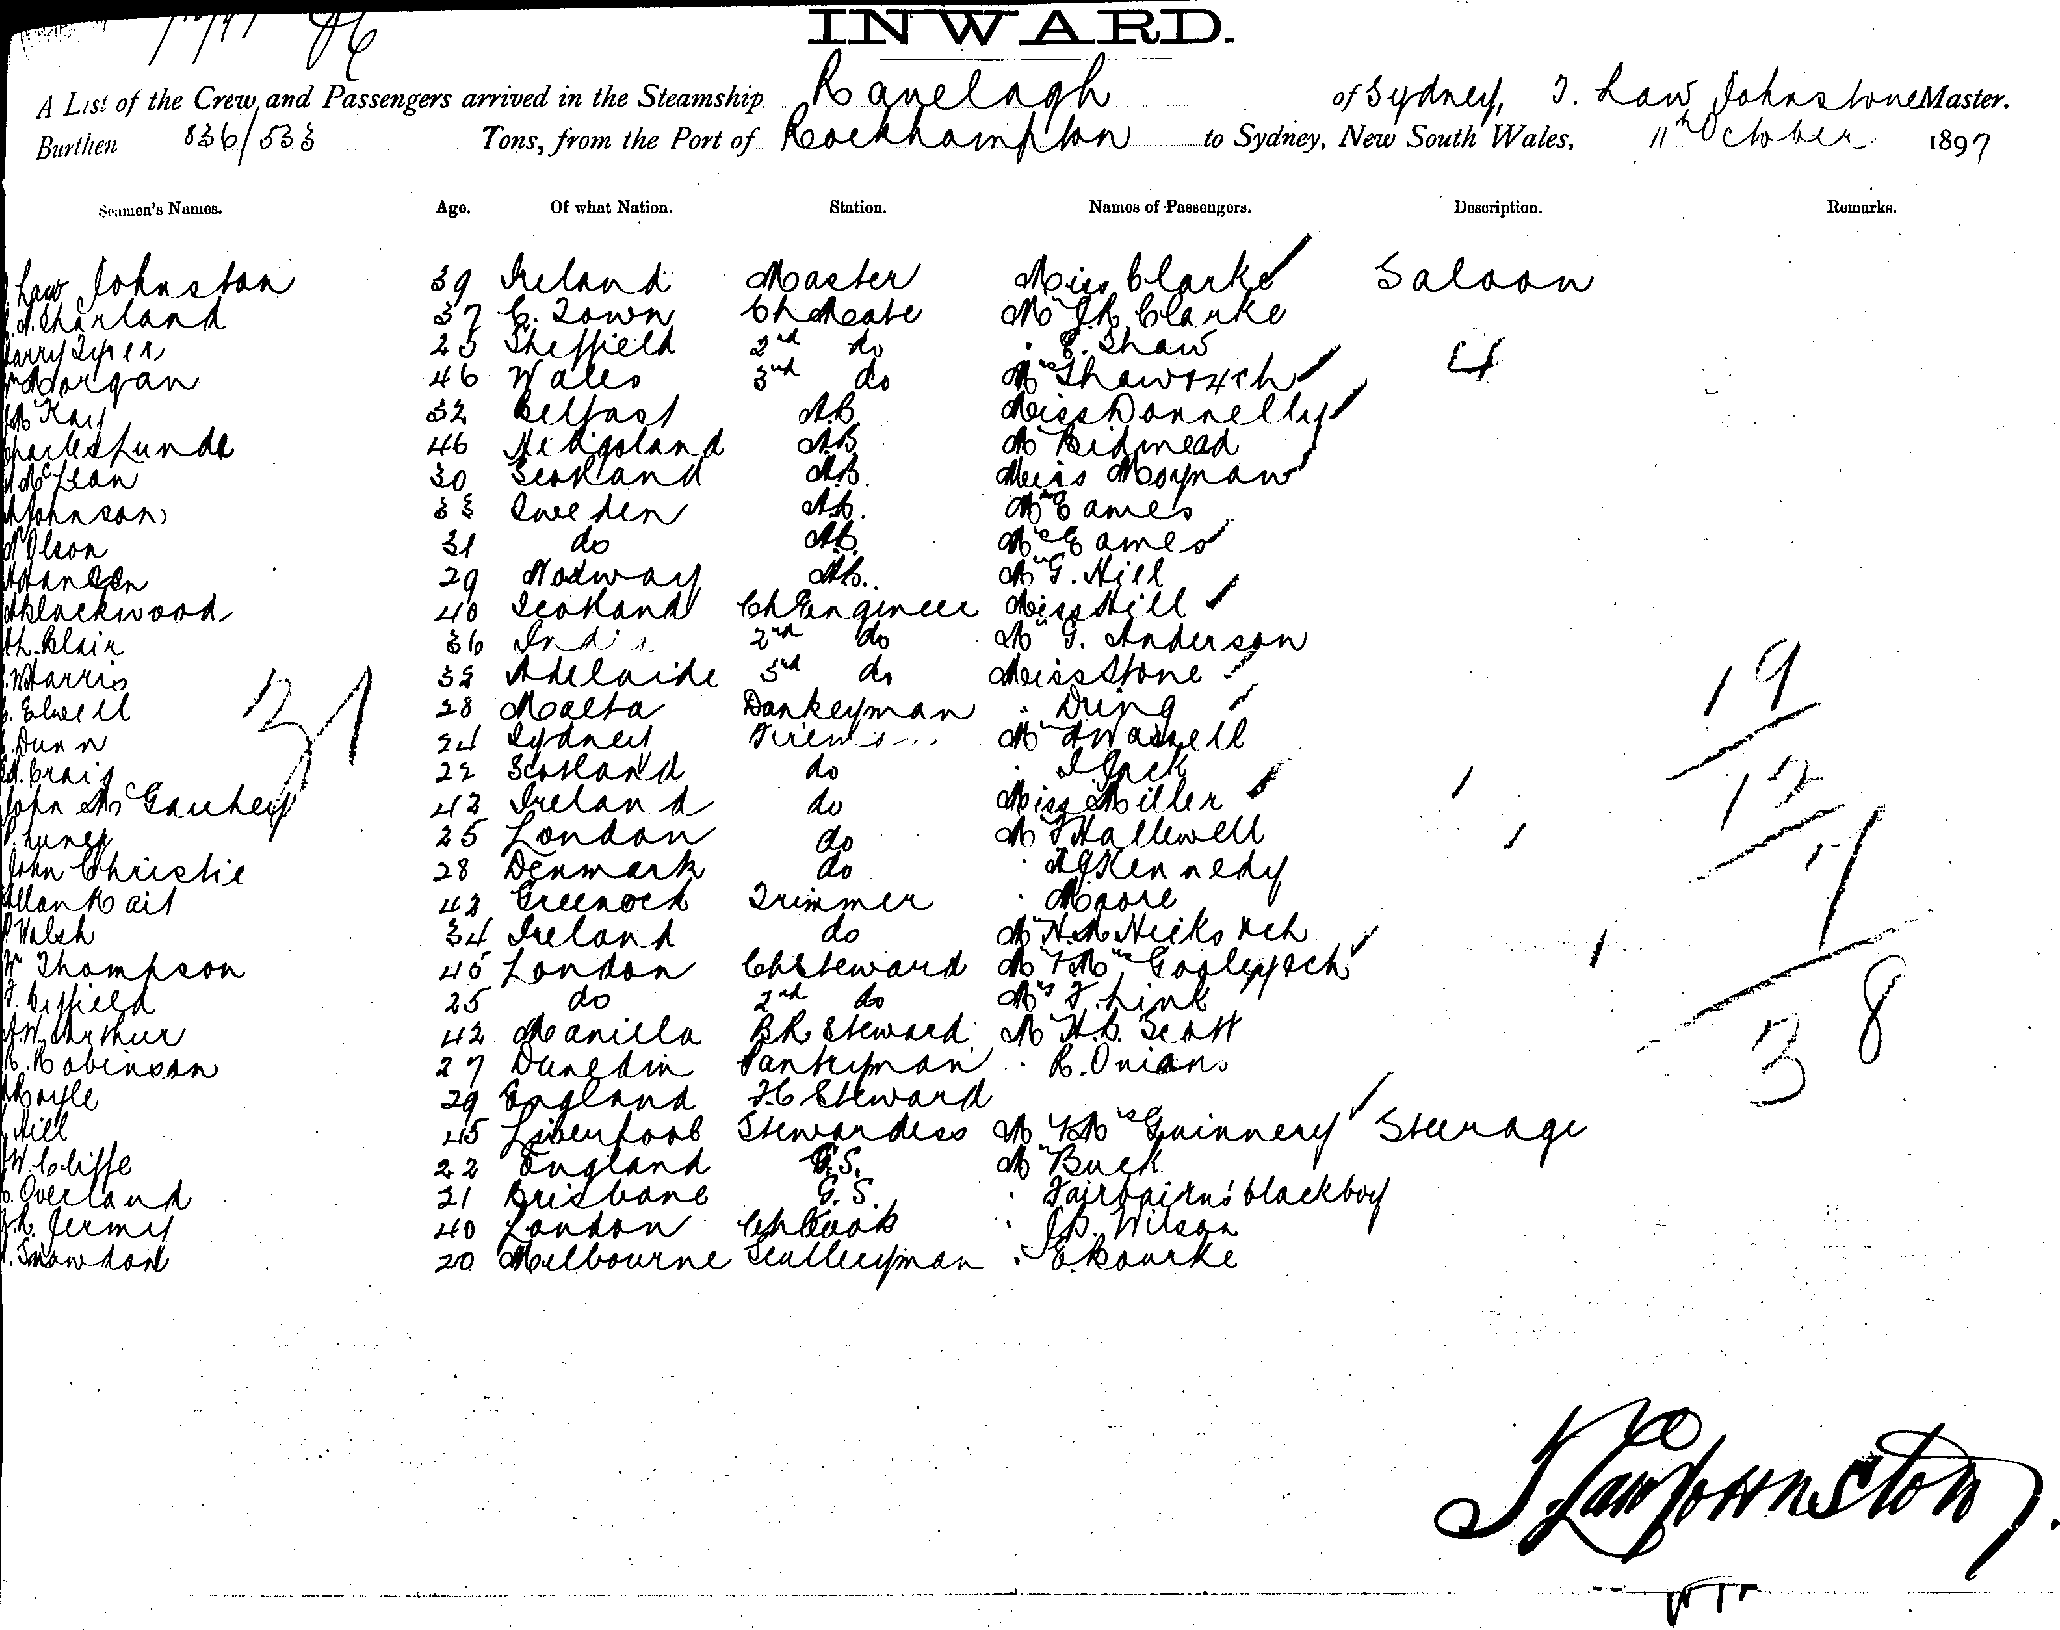 INWARD.
A List of the Crew and Passengers arrived in the Steamship Ranelagh of Sydney, T. Law Johnstone Master.
Burthen 836/533 Tons, from the Port of Rockhampton to Sydney, New South Wales, 11th October 1897
Seamen's Names. Age. Of what Nation. Station. Names of Passengers. Description. Remarks.
Law Johnston 39 Ireland Master Miss Clarke Saloon
Sharland 37 C. Town Ch Mate Mr J.R. Clarke
Harry Tyrer 25 Sheffield 2nd do " E. Shaw
Morgan 46 Wales 3rd do Mrs Shaw & 4 ch 4
Kay 32 Belfast AB Miss Donnelly
Charles Lunde 46 Heligoland AB Mr Bidmead
McLean 30 Scotland AB. Miss Moynaw
Johnson 33 Sweden AB. Mr Eames
Olson 31 do AB. Mrs Eames
Hansen 29 Norway AB. Mr G. Hill
Blackwood 40 Scotland Ch Engineer Miss Hill
Blair 36 Ind 2nd do Mr G. Anderson
Harris 32 Adelaide 3rd do Miss Stone 19
Elwell 28 Malta Donkeyman " Dring
31
Dunn 24 Sydney Firem Mr
Craig 22 Scotland do " Jack 12
John McGauhey 42 Ireland do Miss Miller
25 London do Mr Hallewell
John Christie 28 Denmark do " Kennedy
Allan Rait 42 Greenock Trimmer " Moore
Walsh 34 Ireland do Mr H.M. Hicks & ch
Thompson 45 London Ch Steward Mr & Mrs Gooley & ch
25 do 2nd do Mrs F. Link
W. Arthur 42 Manilla B.R. Steward Mr H.C. Scott 38
R. Robinson 27 Dunedin Pantryman " R. Onians
Boyle 29 England F.C. Steward
Hill 45 Liverpool Stewardess Mr & Mrs Guinnery Steerage
W. Cliffe 22 England G.S. Mr Buck
Overland 21 Brisbane G.S. " Fairbairns' blackboy
Jermy 40 London Ch Cook " J.B. Wilson
Snowdon 20 Melbourne Sculleryman " E. Rourke
T. Law Johnston